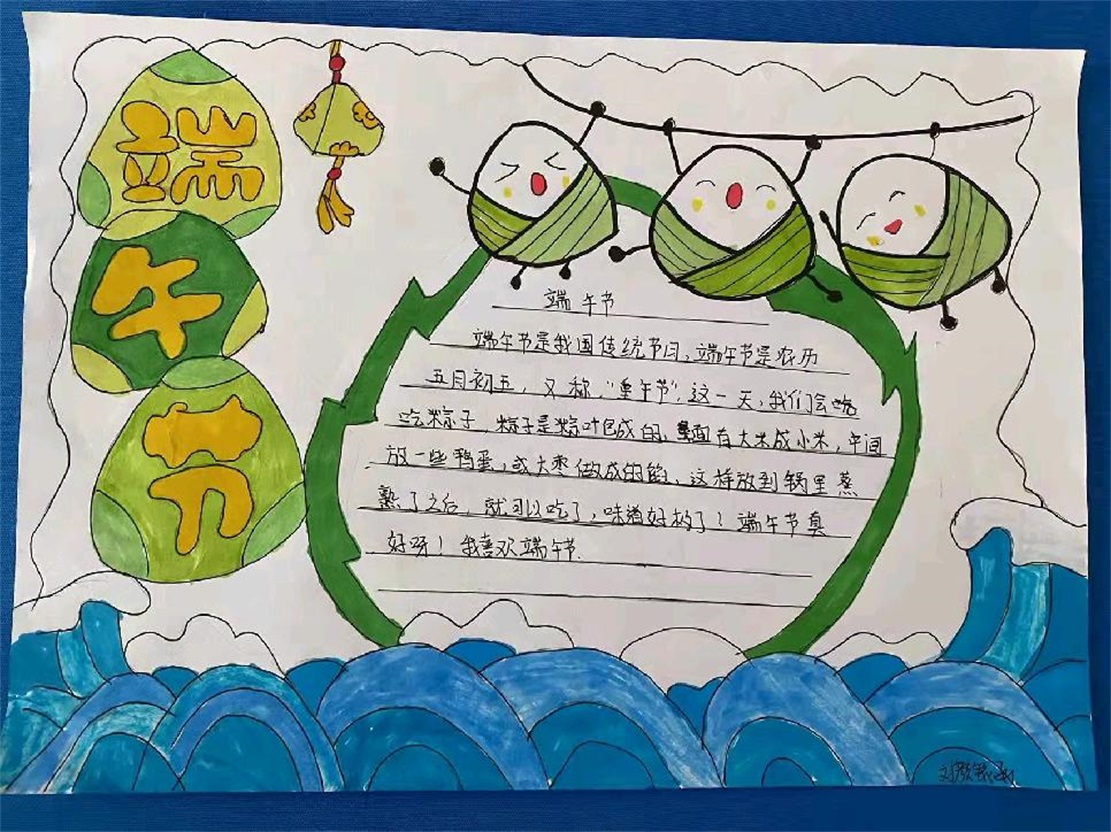 端
午
节
端午节
端午节是我国传统节日，端午节是农历
五月初五，又称，“重午节”，这一天，我们会
吃粽子，粽子是粽叶包成的，里面有大米或小米，中间
放一些鸭蛋，或大枣做成的馅，这样放到锅里蒸
熟了之后，就可以吃了，味道好极了！端午节真
好呀！我喜欢端午节.